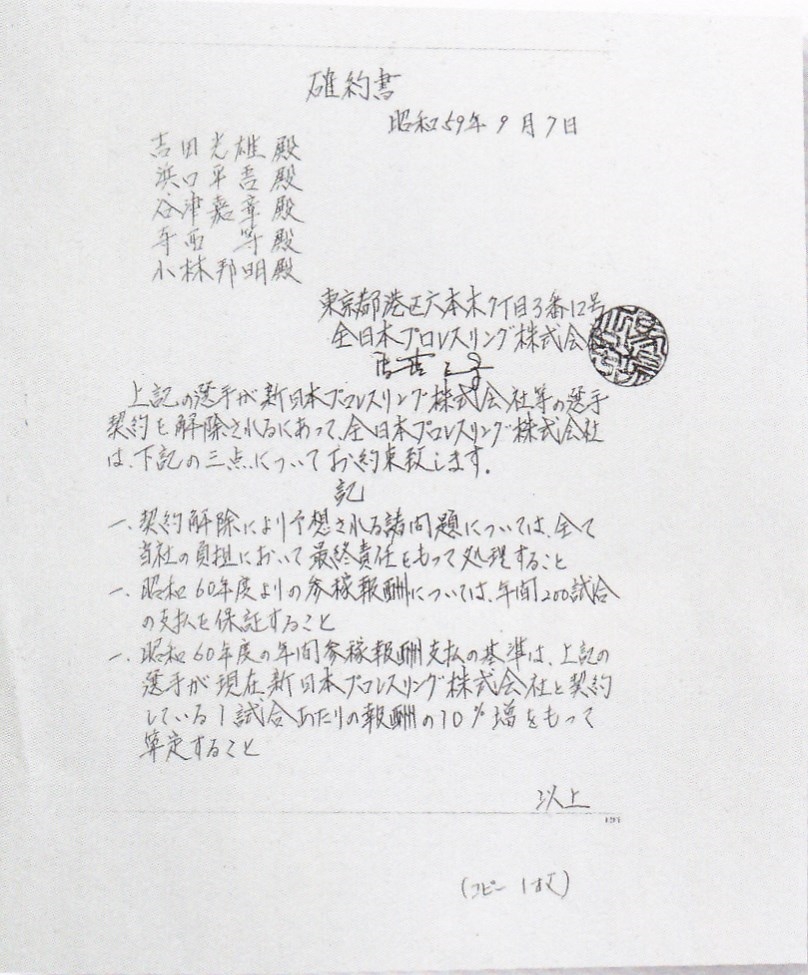 確約書
昭和59年9月7日
吉田光雄殿
浜口平吾殿
谷津嘉章殿
寺西 等殿
小林邦明殿
東京都港区六本木7丁目3番12号
全日本プロレスリング株式会
上記の選手が新日本プロレスリング株式会社等の選手
契約を解除されるにあって、全日本プロレスリング株式会社
は、下記の三点についてお約束致します。
記
一、契約解除により予想される諸問題については、全て
当社の負担において最終責任をもって処理すること
一、昭和60年度よりの参稼報酬については、年間200試合
の支払を保証すること
一、昭和60年度の年間参稼報酬支払の基準は、上記の
選手が現在新日本プロレスリング株式会社と契約
している1試合あたりの報酬の10%増をもって
算定すること
以上
(コピー 1枚)